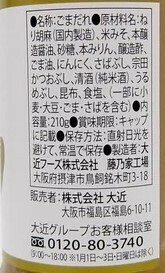 ●名称:ごまだれ●原材料名:ね
り胡麻(国内製造)、米みそ、本
醸造醤油、砂糖、本みりん、醸造酢、
ごま油、にんにく、さばぶし、宗田
かつおぶし、清酒(純米酒)、うる
めぶし、昆布、食塩、(一部に小
麦・大豆・ごま・さばを含む)●内
容量:210g●賞味期限:キャッ
プに記載●保存方法:直射日光を
避けて、常温で保存●製造者:大
近フーズ株式会社 藤乃家工場
大阪府摂津市鳥飼銘木町3-18
販売者:株式会社 大近
大阪市福島区福島6-10-11
大近グループお客様相談室
0120-80-3740
(9:00〜18:00 ※1月1日〜3日・日曜日は除く)